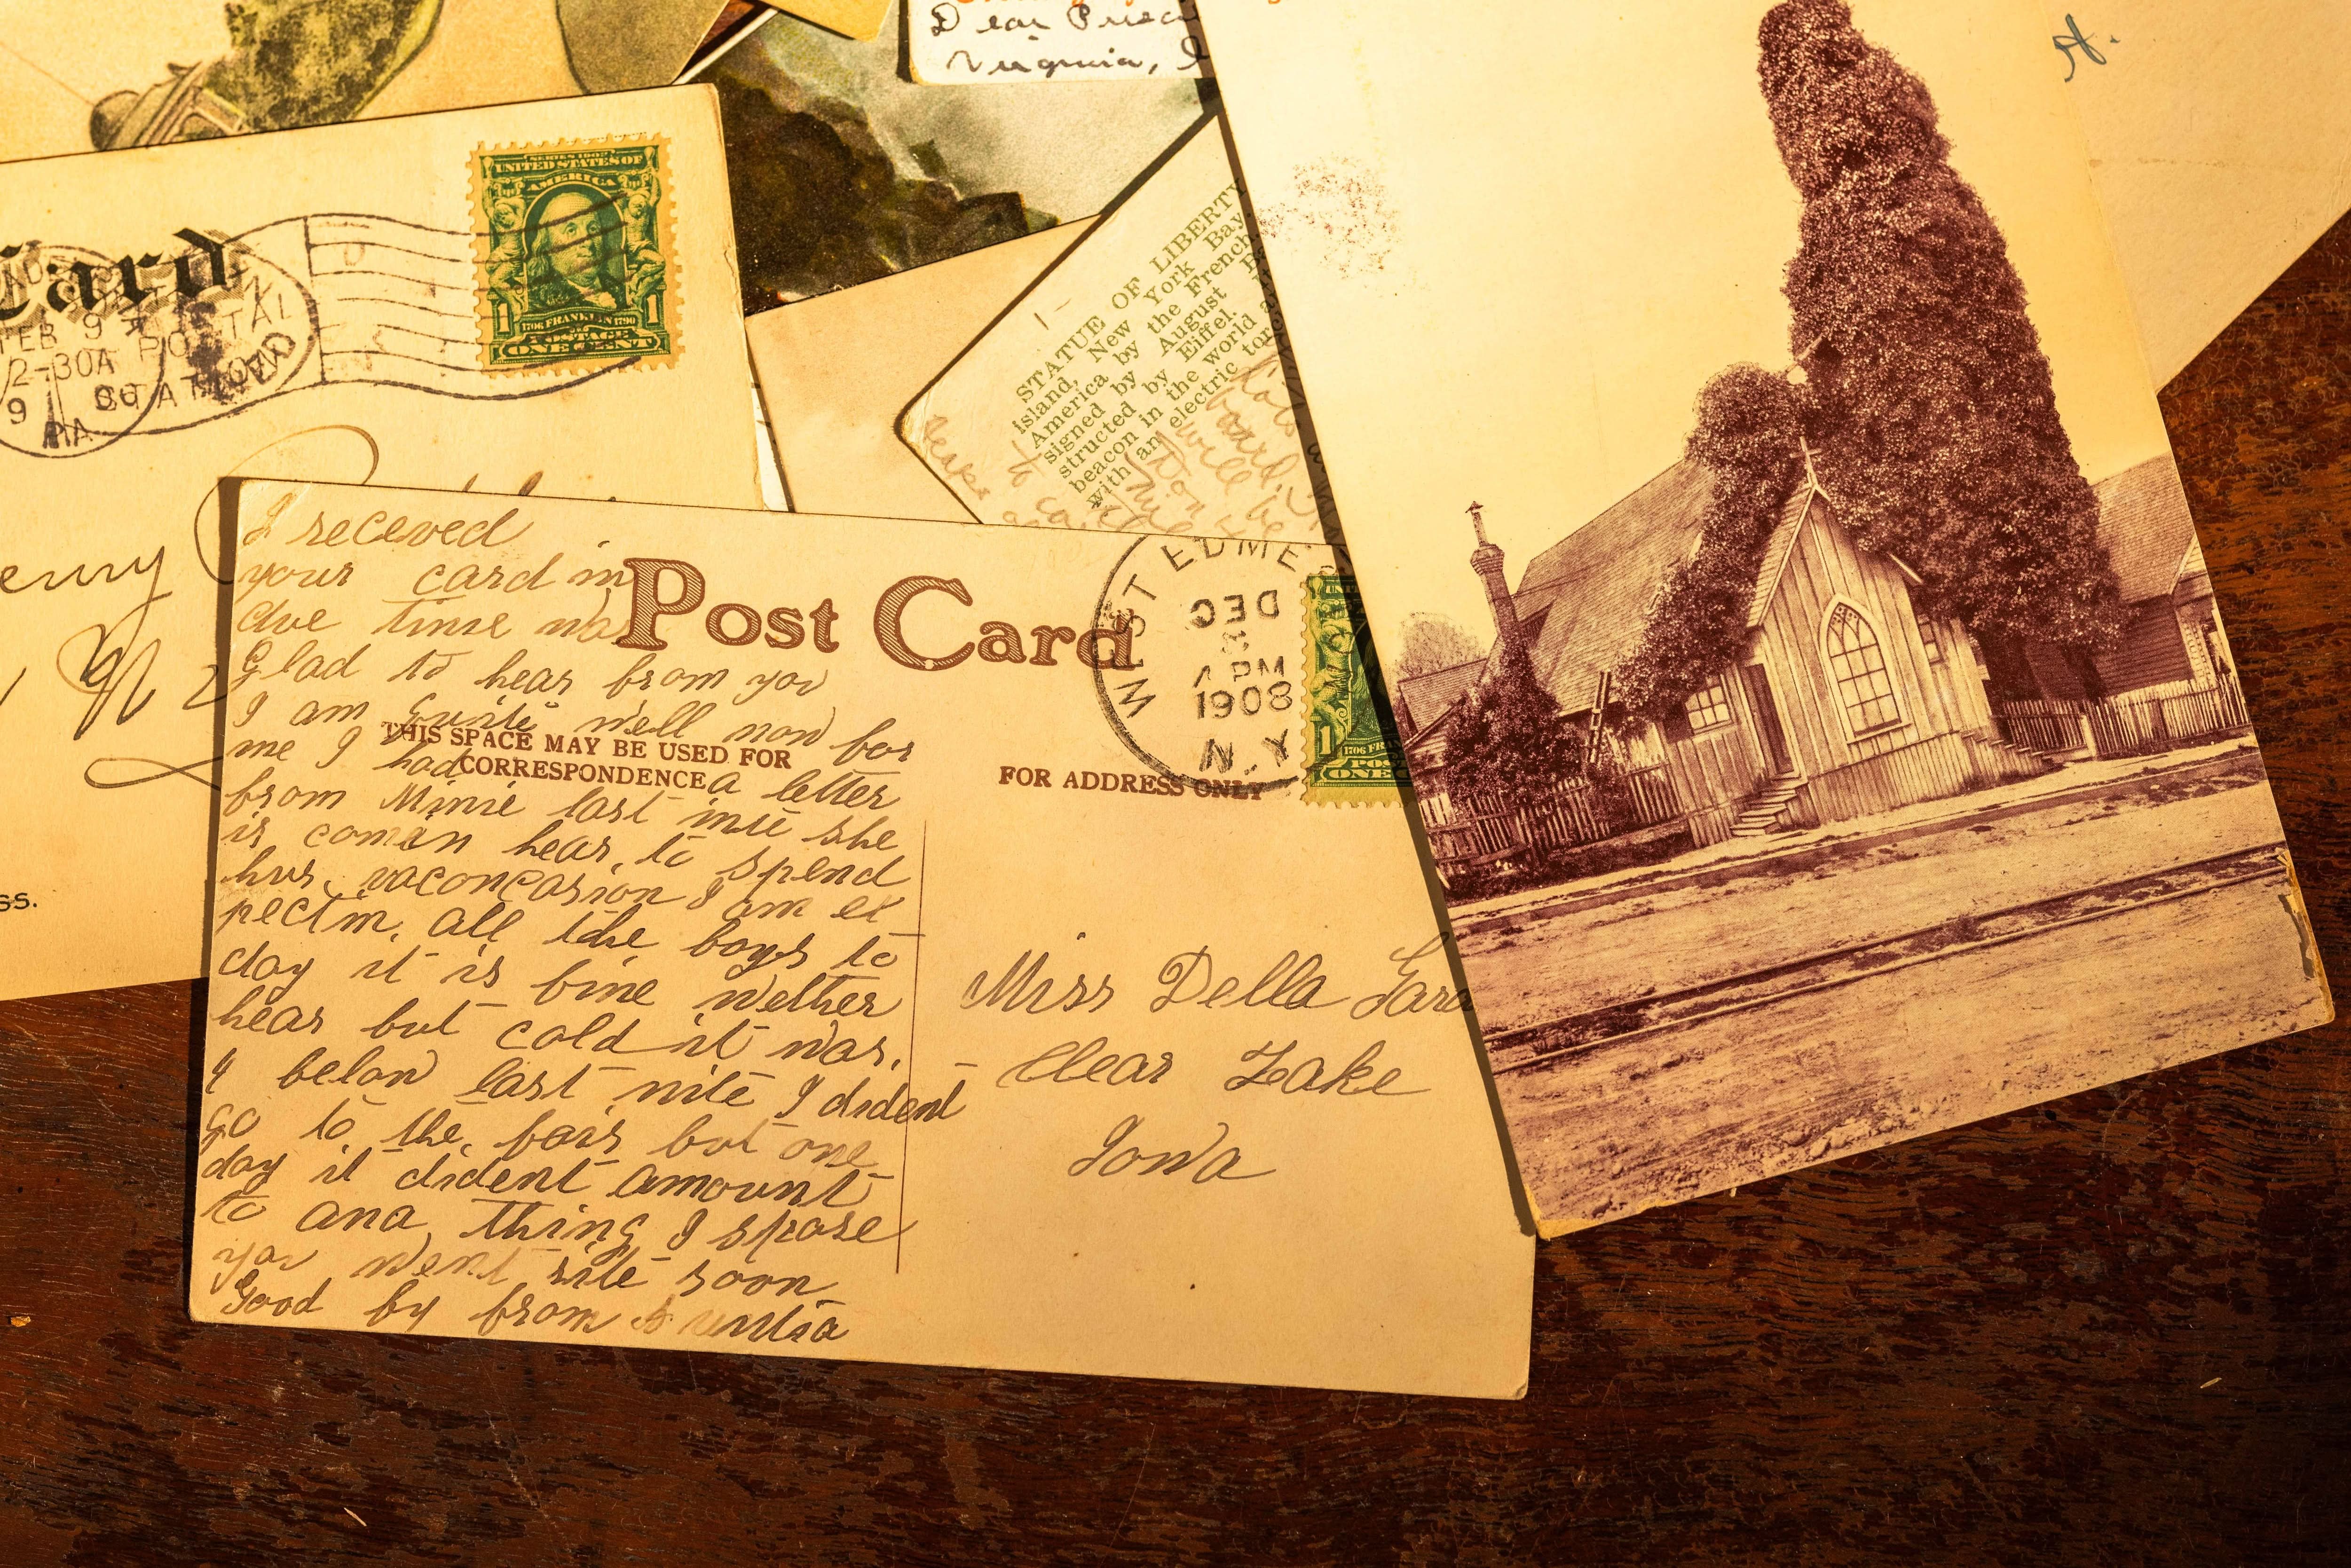 Dear
Virginia,
H.
SERIES 1902
UNITED STATES OF
AMERICA
1 1
1706 FRANKLIN 1790
POSTAGE
ONE CENT
Card
FEB 9
2-30A
POSTAL
STATION
9
PA
ss.
STATUE OF LIBERTY
island, New York Bay.
America by the French.
signed by August
structed by Eiffel.
beacon in the world
with an electric
Post Card
THIS SPACE MAY BE USED FOR
CORRESPONDENCE
FOR ADDRESS ONLY
WEST EDME
DEC
3
PM
1908
N.Y.
1
1706 FR
POS
ONE
I receved
your card in
due time was
Glad to hear from you
I am quite well now for
me I had a letter
from Minie last nite she
is comein hear, to spend
hur I am ex
pectin, all the boys to
day it is fine wether
hear but cold it was,
4 below last nite I dident
go to the, fair but one
day it dident amount
to ana thing I spose
you went rite soon
Good by from
Miss Della
Clear Lake
Iowa